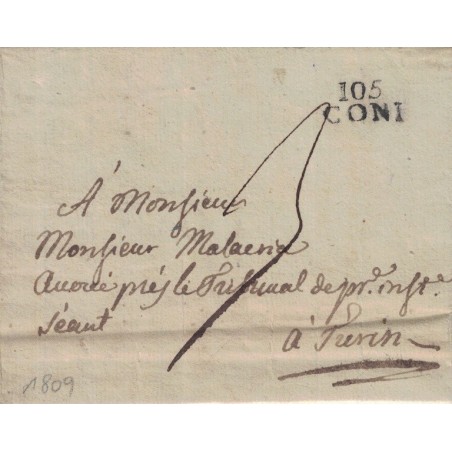 105
CONI
À Monsieur
Monsieur Malacria
Avoué près le Tribunal de pr.e inst.e
Séant
à Turin
1809